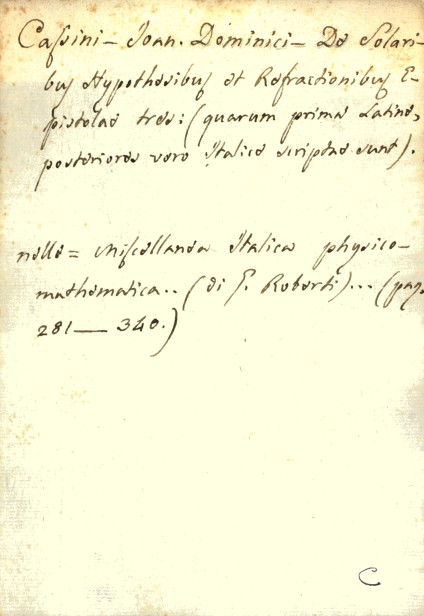 Cassini - Joan. Dominici - De Solari-
bus Hypothesibus et Refractionibus E-
pistolae tres: (quarum prima Latine,
posteriores vero Italice scriptae sunt).
nelle = Miscellanea Italica physico-
mathematica.. (di G. Roberti)... (pag.
281 — 340.)
C